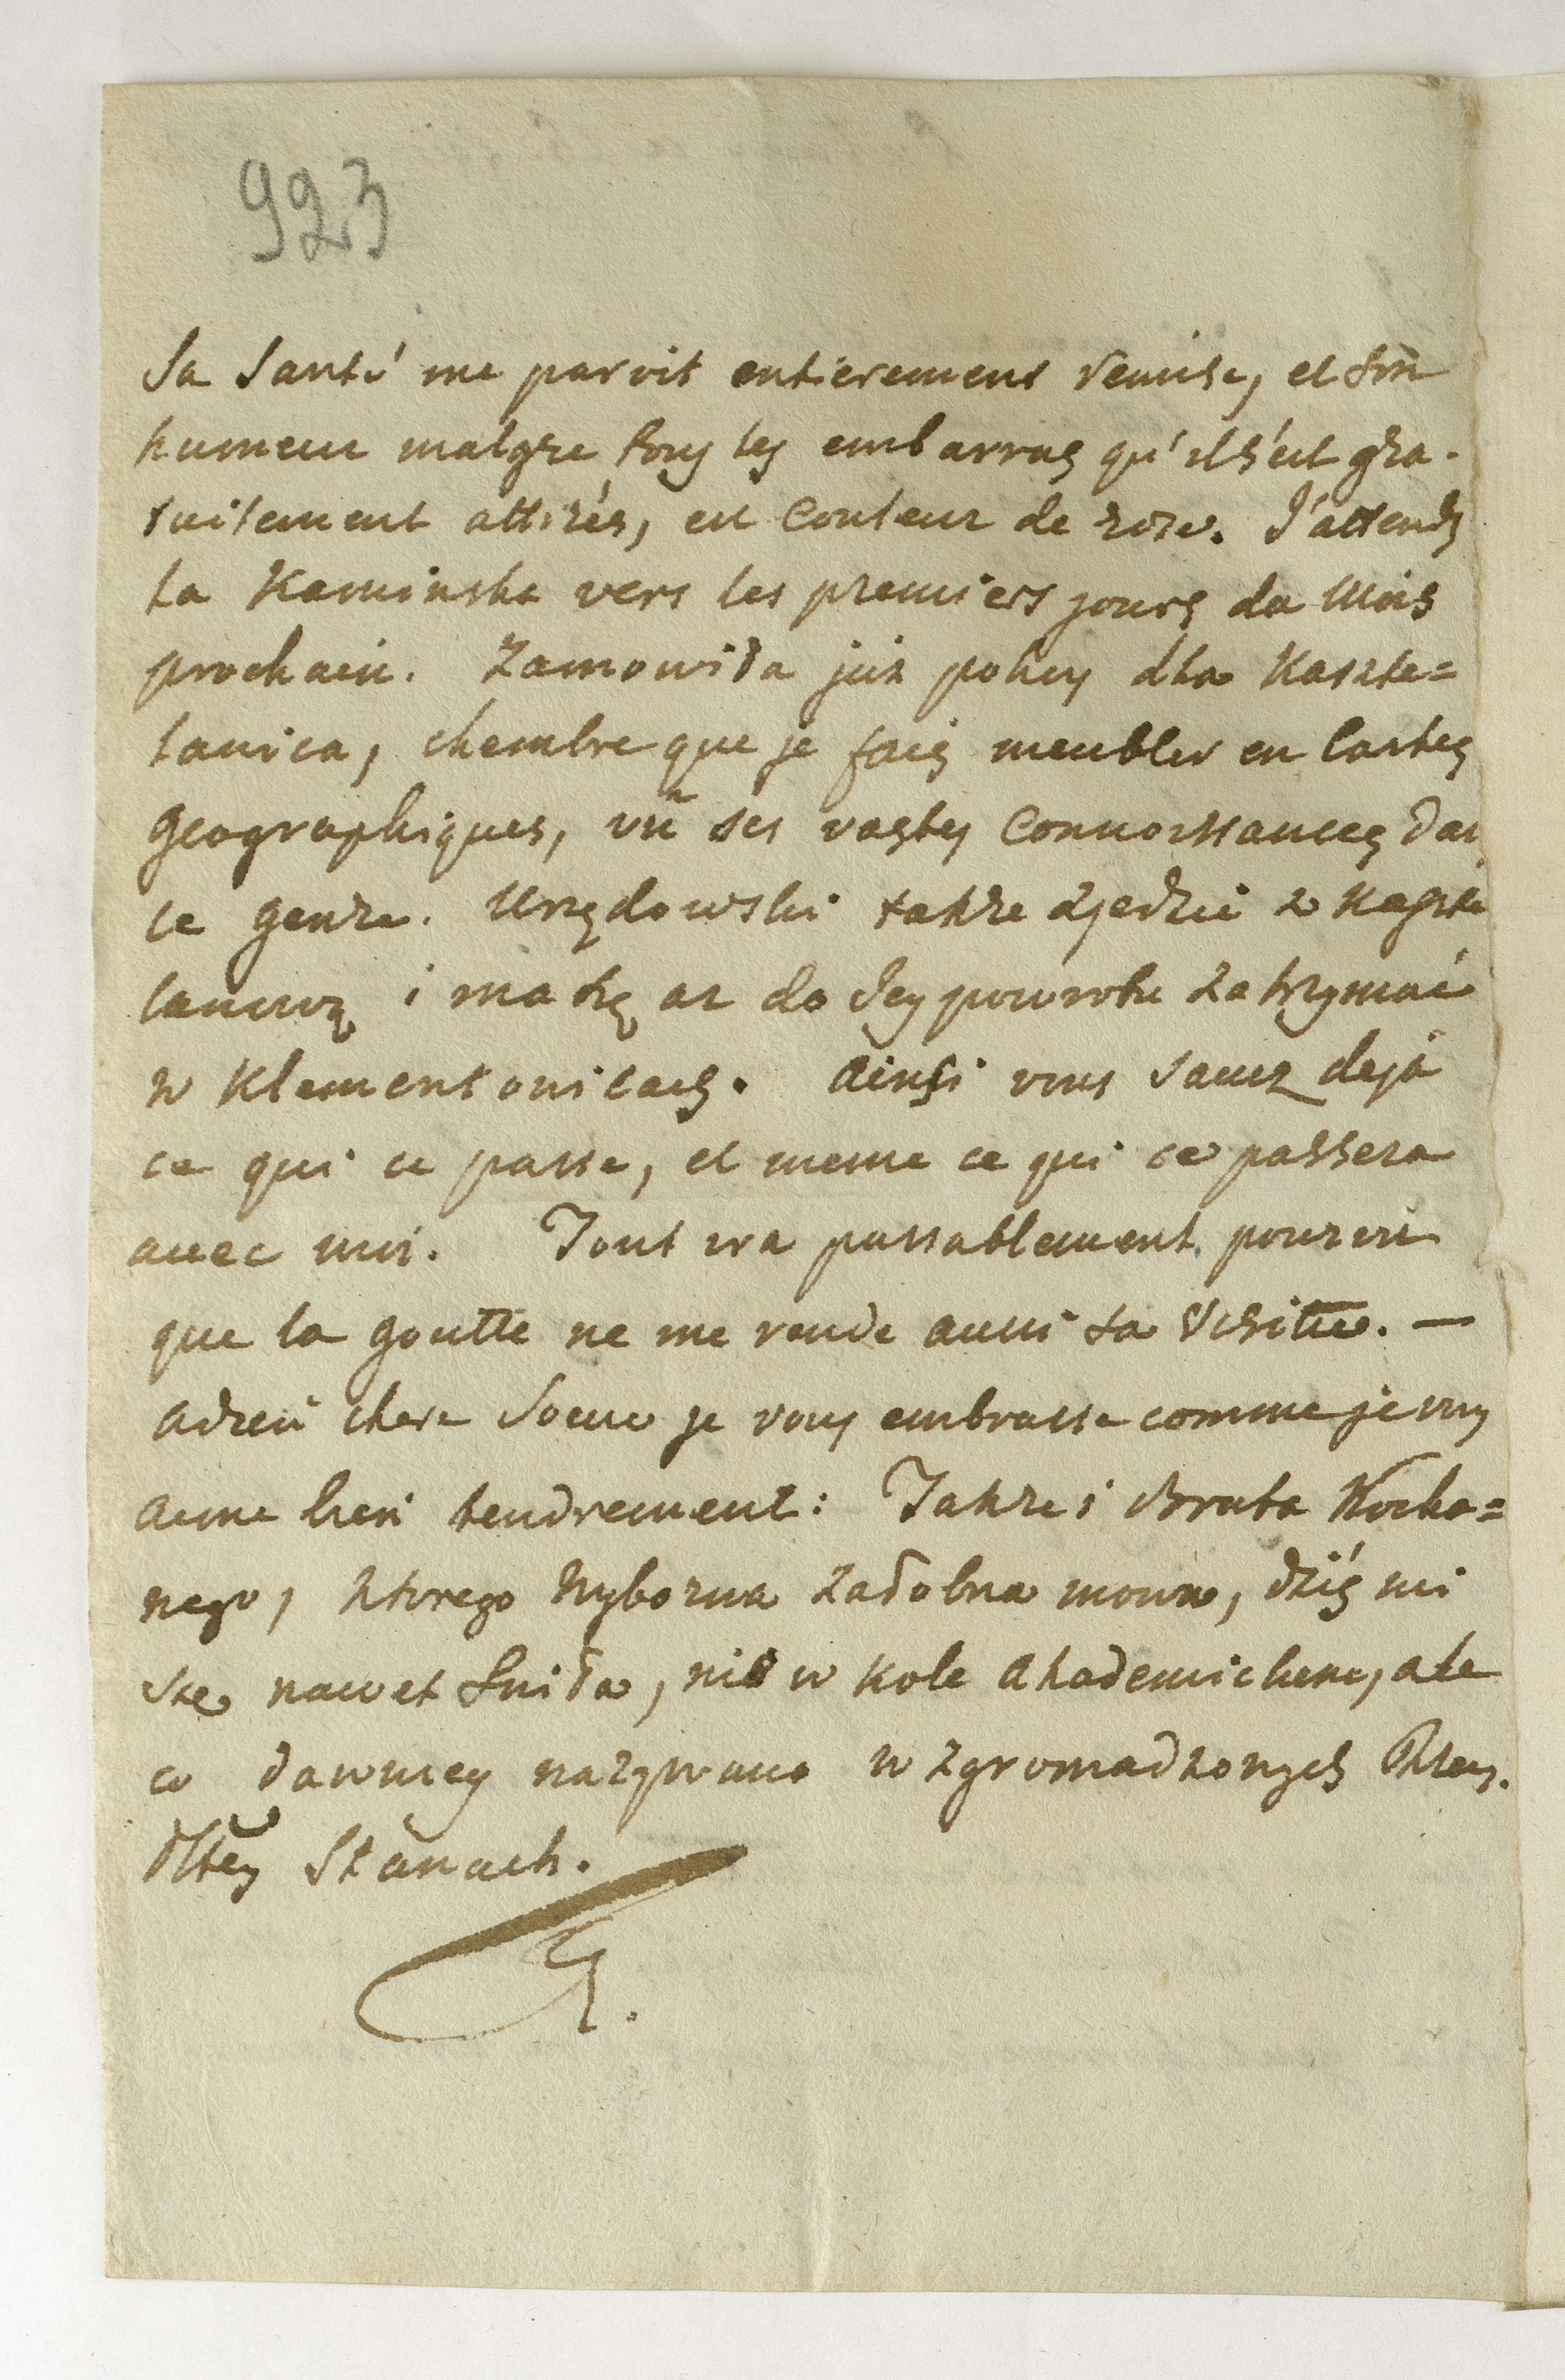 923
Sa Santé me paroit entierement remise, et son
humeur malgre tous les embarras qu'il s'est gra-
tuitement attirés, est Couleur de roze. J'attends
la Kaminska vers les premiers jours du Mois
prochain. Zamowiła już pokoy dla Kaszte=
lanica, chambre que je fais meubler en Cartes
Geographiques, vû ses vastes Connoissances dans
ce genre. Urzędowski także zjedzie z Kaszte
lanicą i ma się aż do Jey powrotu zatrzymać
w Klementowicach. Ainsi vous savez deja
ce qui ce passe, et meme ce qui ce passera
avec moi. Tout ira passablement pourvu
que la goutte ne me rende aussi sa Visitte. —
Adieu chere Soeur je vous embrasse comme je vous
aime bien tendrement: Także i Brata Kocha=
nego, ktorego Wyborna Załobna mowa, dziś mi
sie nawet sniła, nie w Kole Akademickim, ale
co dawniey nazywano w zgromadzonych Rzeczy.
Pltey Stanach.